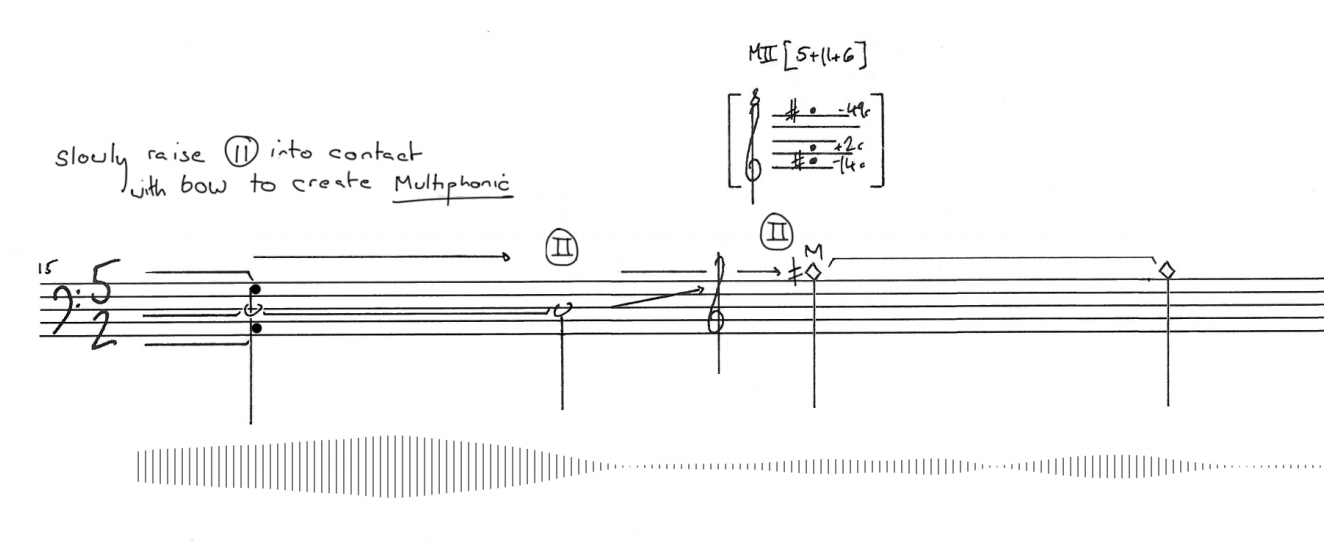 MII [5+11+6]
-49c
+2c
-14c
slowly raise II into contact
with bow to create Multiphonic
II
II
M
15
5
2